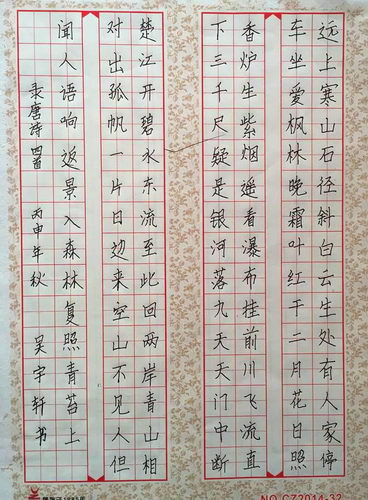 远上寒山石径斜白云生处有人家停
车坐爱枫林晚霜叶红于二月花日照
香炉生紫烟遥看瀑布挂前川飞流直
下三千尺疑是银河落九天天门中断
楚江开碧水东流至此回两岸青山相
对出孤帆一片日边来空山不见人但
闻人语响返景入森林复照青苔上
录唐诗四首 丙申年秋 吴宇轩书
NO.CZ2014-32